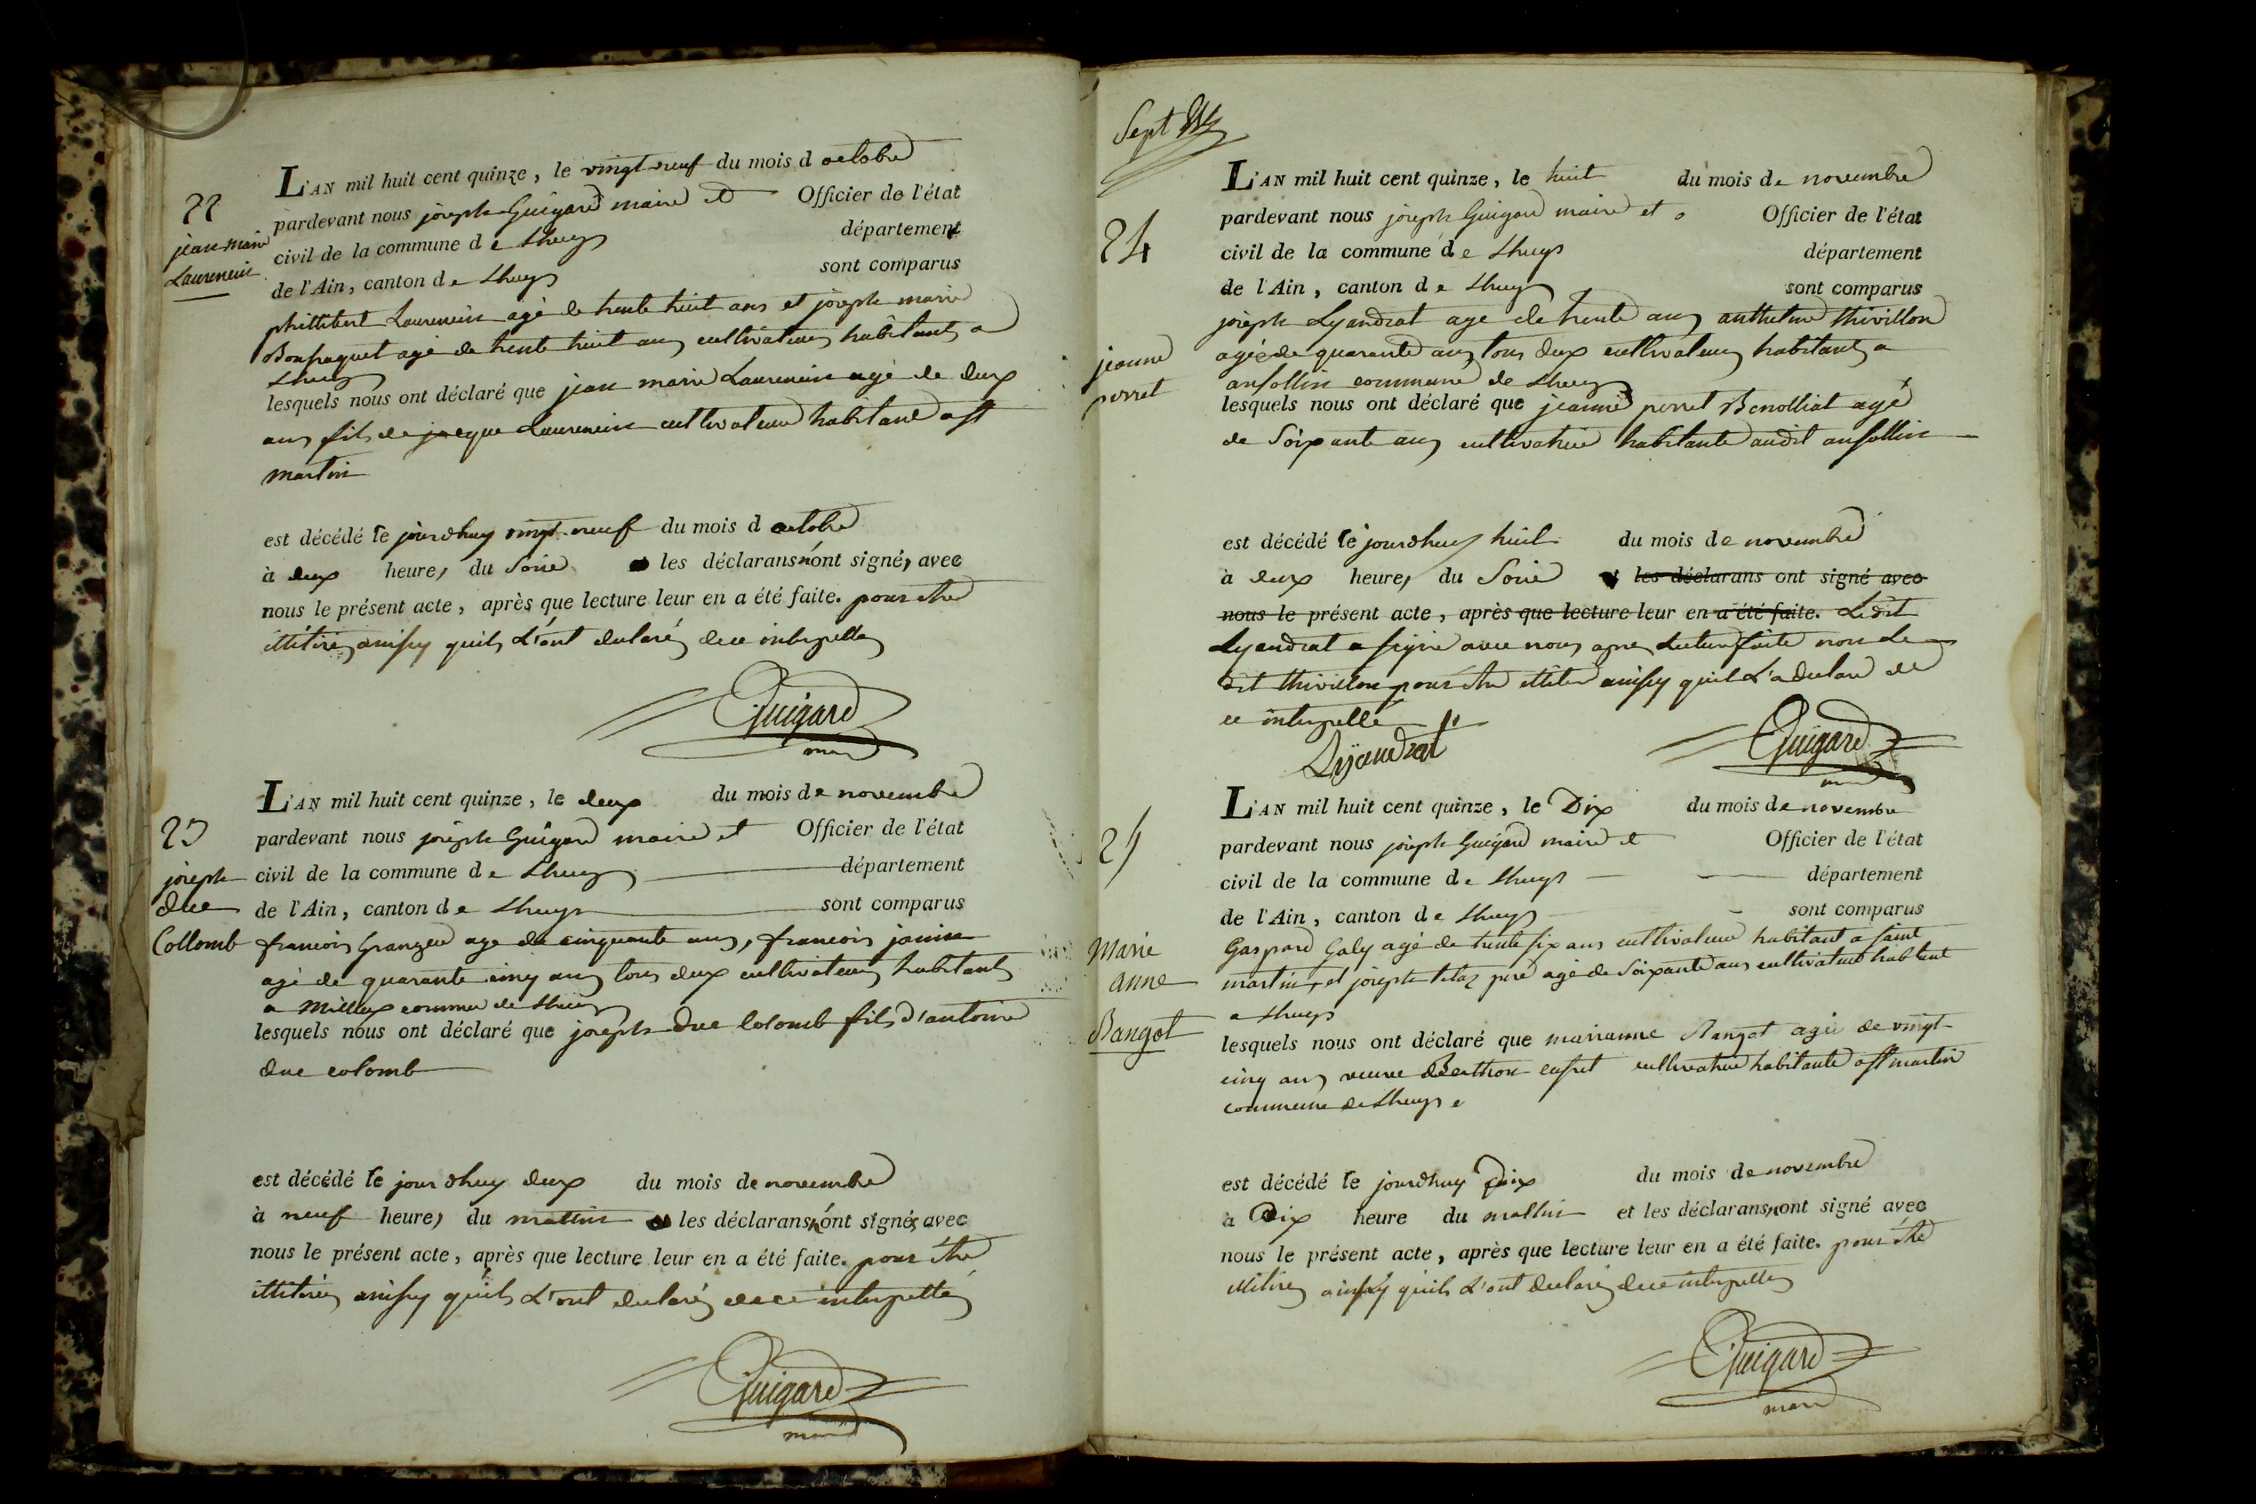 22
jean marie
Laurencin
L'AN mil huit cent quinze, le vingt neuf du mois d octobre
pardevant nous joseph Guigard maire et Officier de l'état
civil de la commune d e Lhuys département
de l'Ain, canton d e Lhuys sont comparus
phillibert Laurencin agé de trente huit ans et joseph marie
Bonpaquet agé de trente huit ans cultivateurs habitants a
Lhuys
lesquels nous ont déclaré que jean marie Laurencin agé de deux
ans fils de jacque Laurencin cultivateur habitant a st
martin
est décédé le jourdhuy vingt neuf du mois d octobre
à deux heures du soire les déclarans n'ont signés avec
nous le présent acte, après que lecture leur en a été faite. pour etre
illitirés ainsy quils L'ont declarés de ce interpellés
Guigard
maire
23
joseph
duc
Collomb
L'AN mil huit cent quinze, le deux du mois de novembre
pardevant nous joseph Guigard maire et Officier de l'état
civil de la commune d e Lhuys département
de l'Ain, canton d e Lhuys sont comparus
francois Grangeu age de cinquante ans, francois janin
agé de quarante cinq ans tous deux cultivateurs habitants
a Millieux commune de Lhuys
lesquels nous ont déclaré que joseph duc Colomb fils d'antoine
duc colomb
est décédé le jour dhuy deux du mois de novembre
à neuf heures du mattin les déclarans n'ont signés avec
nous le présent acte, après que lecture leur en a été faite. pour être
illitirés ainsy quils L'ont declarés de ce interpellés
Guigard
maire
Sept
24
jeanne
perret
L'AN mil huit cent quinze, le huit du mois de novembre
pardevant nous joseph Guigard maire et Officier de l'état
civil de la commune d e Lhuys département
de l'Ain, canton d e Lhuys sont comparus
joseph Lyandrat age de trente ans anthelme thivillon
agé de quarante ans tous deux cultivateurs habitants a
ansollin commune de Lhuys
lesquels nous ont déclaré que jeanne perret Benolliat agé
de Soixante ans cultivatrice habitante audit ansollin
est décédé le jourdhuy huit du mois de novembre
à deux heures du Soire les déclarans ont signé avec
nous le présent acte, après que lecture leur en a été faite. Ledit
Lyandrat a signé avec nous apres Lecture faite non Le
dit thivillon pour etre illitiré ainsy quil L'a declaré de
ce interpellé
Lyandrat
Guigard
maire
25
Marie
anne
Bangot
L'AN mil huit cent quinze, le Dix du mois de novembre
pardevant nous joseph Guigard maire et Officier de l'état
civil de la commune d e Lhuys département
de l'Ain, canton d e Lhuys sont comparus
Gaspard Galy agé de trente six ans cultivateur habitant a saint
martin, et joseph tetaz pere agé de Soixante ans cultivateur habitant
a Lhuys
lesquels nous ont déclaré que marianne Bangot agée de vingt
cinq ans veuve Berthon cultivatrice habitante a st martin
commune de Lhuys
est décédé le jourdhuy Dix du mois de novembre
à Dix heure du mattin et les déclarans n'ont signé avec
nous le présent acte, après que lecture leur en a été faite. pour être
illitirés ainsy quils L'ont declarés de ce interpellés
Guigard
maire